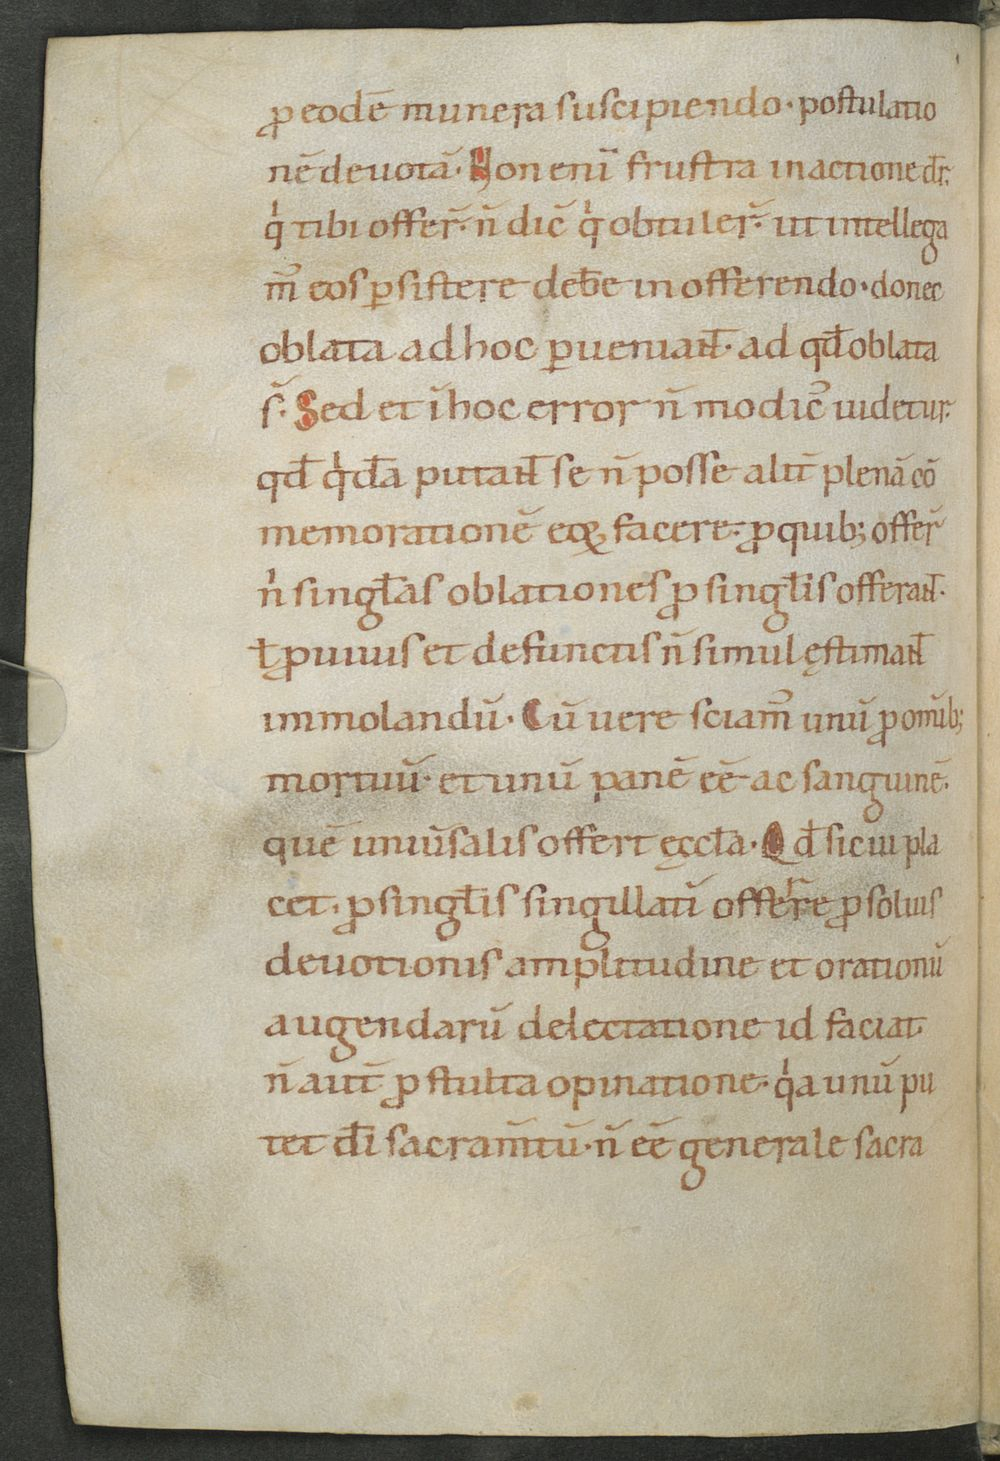 ꝓ eodē munera suscipiendo · postulatio
nē deuotā · Non enī frustra in actione dr̄ ·
qͥ tibi offer̄ · n̄ dic̄ qͥ obtuler̄ · ut intellega
m᷒ eos ꝑsistere deb̄e in offerendo · donec
oblata ad hoc ꝑueniant̄ · ad qd̄ oblata
s̄ · Sed et ī hoc error n̄ modic᷒ uidetur ·
qd̄ qͥd̄a putant̄ se n̄ posse alit̄ plenā cō
memorationē eoꝝ facere · ꝓ quib; offer̄
nͥ singl̄as oblationes ꝓ singl̄is offerant̄ ·
ł ꝓ uiuis et defunctis n̄ simul ęstimant̄
immolandū · Cū uere sciam᷒ unū ꝓ om̄ib;
mortuū · et unū panē eē ac sanguinē ·
quē uniūsalis offert ęccl̄a · Qd̄ si cui pla
cet · ꝓ singl̄is singillatī offerre ꝓ solius
deuotionis amplitudine et orationū
augendarū delectatione id faciat ·
n̄ aut̄ ꝓ stulta opinatione · qͥa unū pu
tet dī sacram̄tū · n̄ eē generale sacra